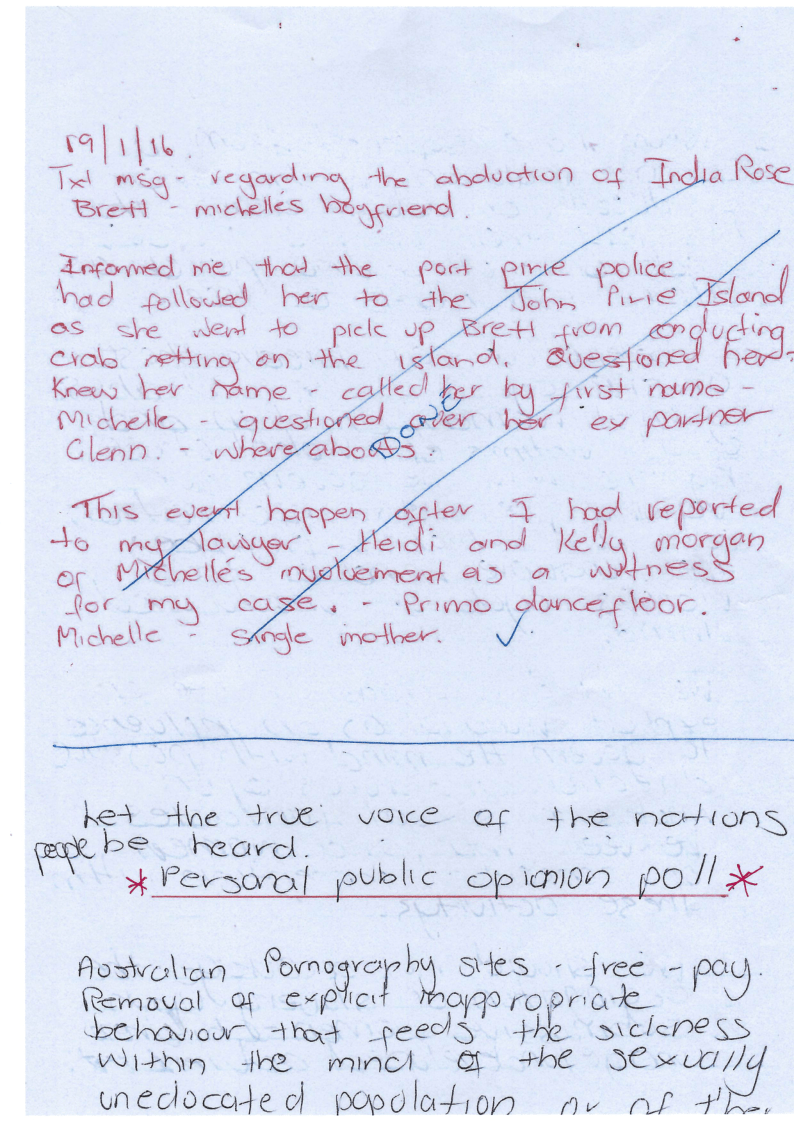 19/1/16.
Txt msg - regarding the abduction of India Rose
Brett - michelle's boyfriend.
Informed me that the port pirie police
had followed her to the John Pirie Island
as she went to pick up Brett from conducting
crab netting on the island. Questioned her -
Knew her name - called her by first name -
Michelle - questioned over her ex partner
Glenn. - where abouts.
DONE
This event happen after I had reported
to my lawyer - Heidi and Kelly morgan
of Michelle's involvement as a witness
for my case. - Primo dancefloor.
Michelle - single mother. ✓
Let the true voice of the nations
people be heard.
* Personal public opionion poll *
Australian Pornography sites. free - pay.
Removal of explicit inappropriate
behaviour that feeds the sickness
within the mind of the sexually
unedocated popolation or of